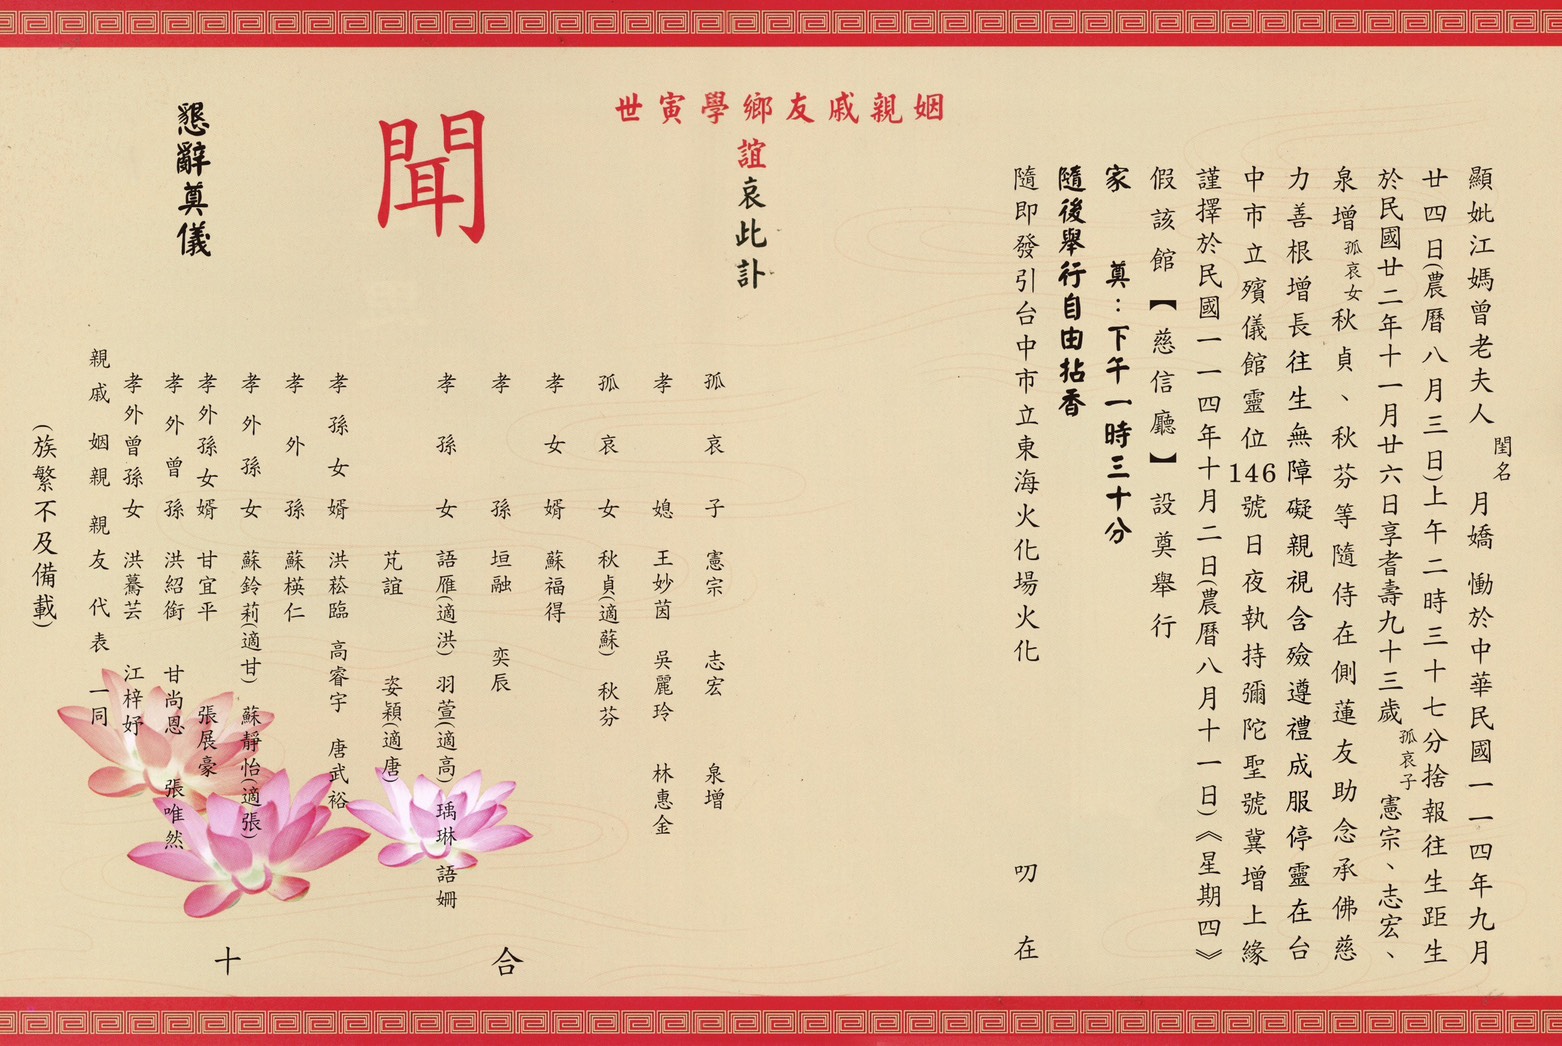 顯妣江媽曾老夫人閨名月嬌慟於中華民國一一四年九月
廿四日(農曆八月三日)上午二時三十七分捨報往生距生
於民國廿二年十一月廿六日享耆壽九十三歲孤哀子憲宗、志宏、
泉增孤哀女秋貞、秋芬等隨侍在側蓮友助念承佛慈
力善根增長往生無障礙親視含殮遵禮成服停靈在台
中市立殯儀館靈位146號日夜執持彌陀聖號冀增上緣
謹擇於民國一一四年十月二日(農曆八月十一日)《星期四》
假該館【慈信廳】設奠舉行
家奠:下午一時三十分
隨後舉行自由拈香
隨即發引台中市立東海火化場火化 叨在
姻親戚友鄉學寅世
誼哀此訃
聞
懇辭奠儀
孤哀子 憲宗 志宏 泉增
孝媳 王妙茵 吳麗玲 林惠金
孤哀女 秋貞(適蘇) 秋芬
孝女婿 蘇福得
孝孫 垣融 奕辰
孝孫女 語雁(適洪) 羽萱(適高) 瑀琳 語姍
芃誼 姿穎(適唐)
孝孫女婿 洪菘臨 高睿宇 唐武裕
孝外孫 蘇楧仁
孝外孫女 蘇鈴莉(適甘) 蘇靜怡(適張)
孝外孫女婿 甘宜平 張展豪
孝外曾孫 洪紹銜 甘尚恩 張唯然
孝外曾孫女 洪驀芸 江梓妤
親戚姻親親友代表一同
(族繁不及備載)
合十